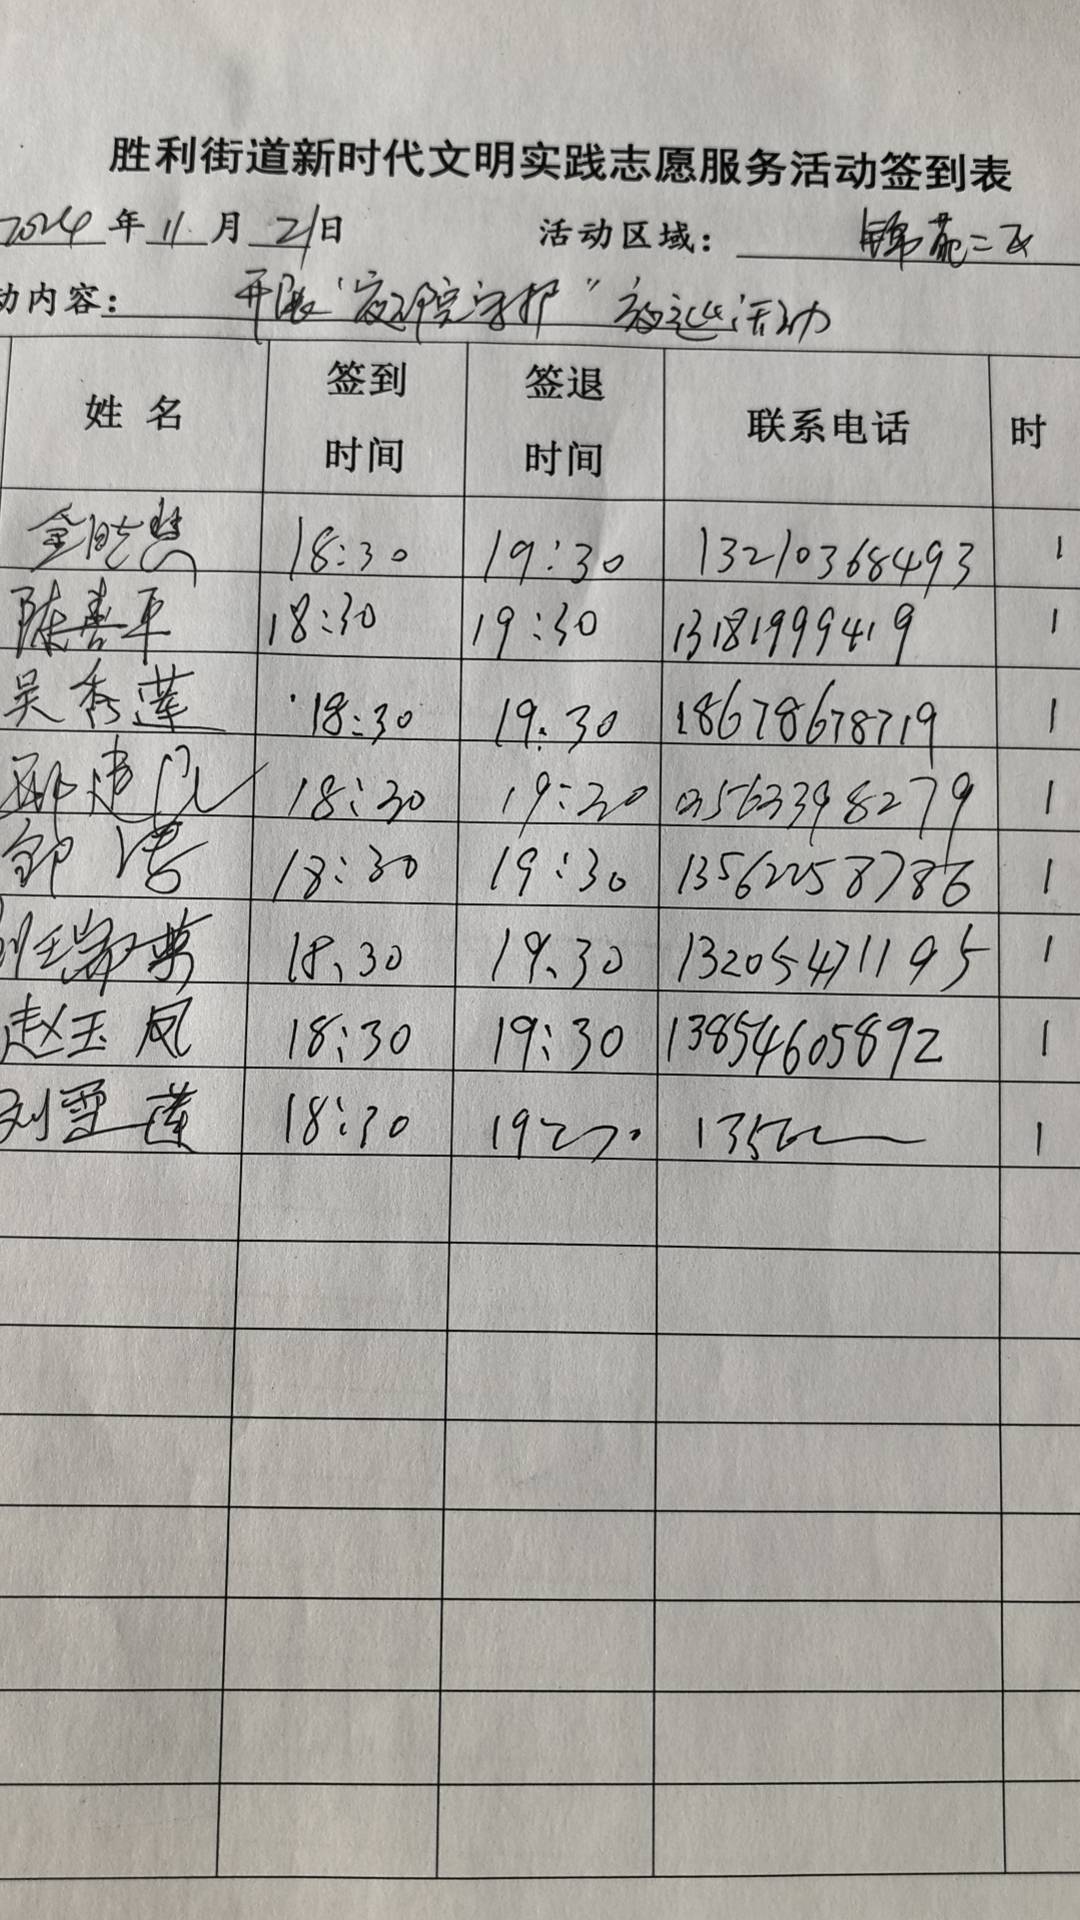 胜利街道新时代文明实践志愿服务活动签到表
2024年11月21日 活动区域: 锦苑二区
动内容: 开展“庭院守护”夜巡活动
姓名 签到时间 签退时间 联系电话 时
金晓慧 18:30 19:30 13210368493 1
陈善平 18:30 19:30 13181999419 1
吴秀莲 18:30 19:30 18678678719 1
邵建 18:30 19:30 1
邹涛 18:30 19:30 13562258786 1
18:30 19:30 13205471195 1
赵玉凤 18:30 19:30 13854605892 1
刘雪莲 18:30 1